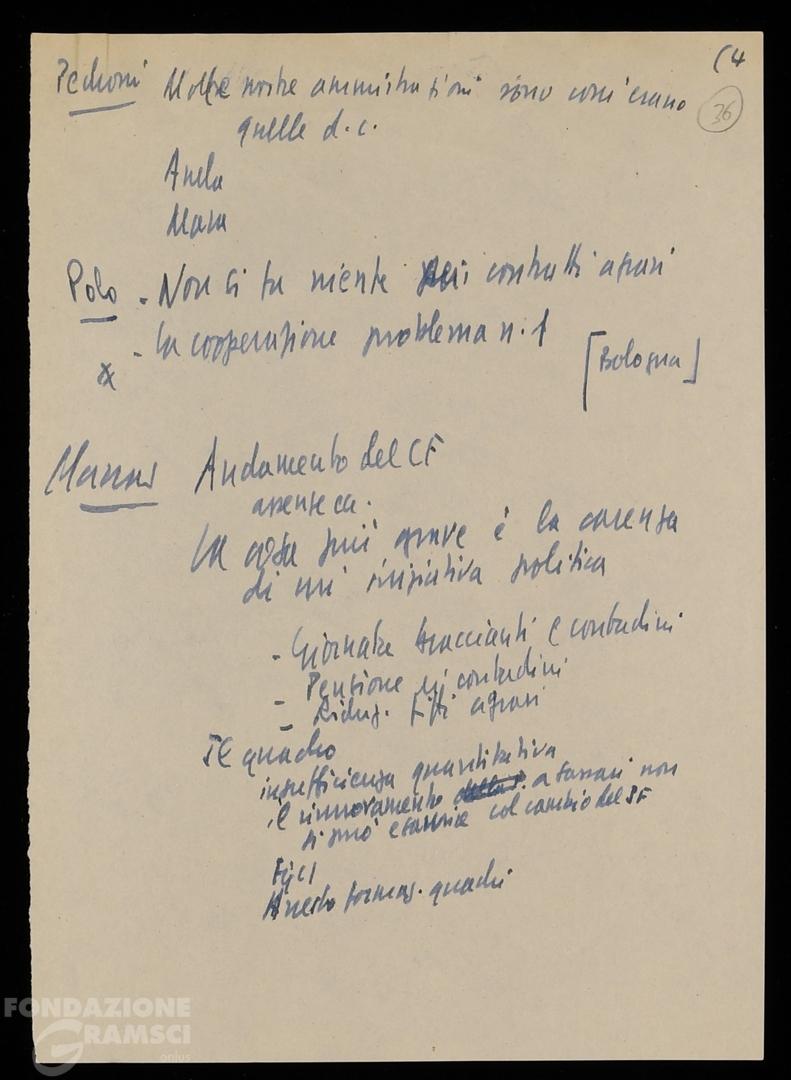 (4
36
Pedroni Molte nostre amministrazioni sono com'erano
quelle d.c.
Anela
Mara
Polo - Non si fa niente sui contratti agrari
- la cooperazione problema n. 1
[Bologna]
x
Manni Andamento del CF
assente ca.
la cosa più grave è la carenza
di un' iniziativa politica
- Giornate braccianti e contadini
- Pensione ai contadini
- Riduz. fitti agrari
Il quadro
insufficienza quantitativa
il rinnovamento a Sassari non
si può esaurire col cambio del SF
FGCI
Arresto formaz. quadri
FONDAZIONE
GRAMSCI
onlus